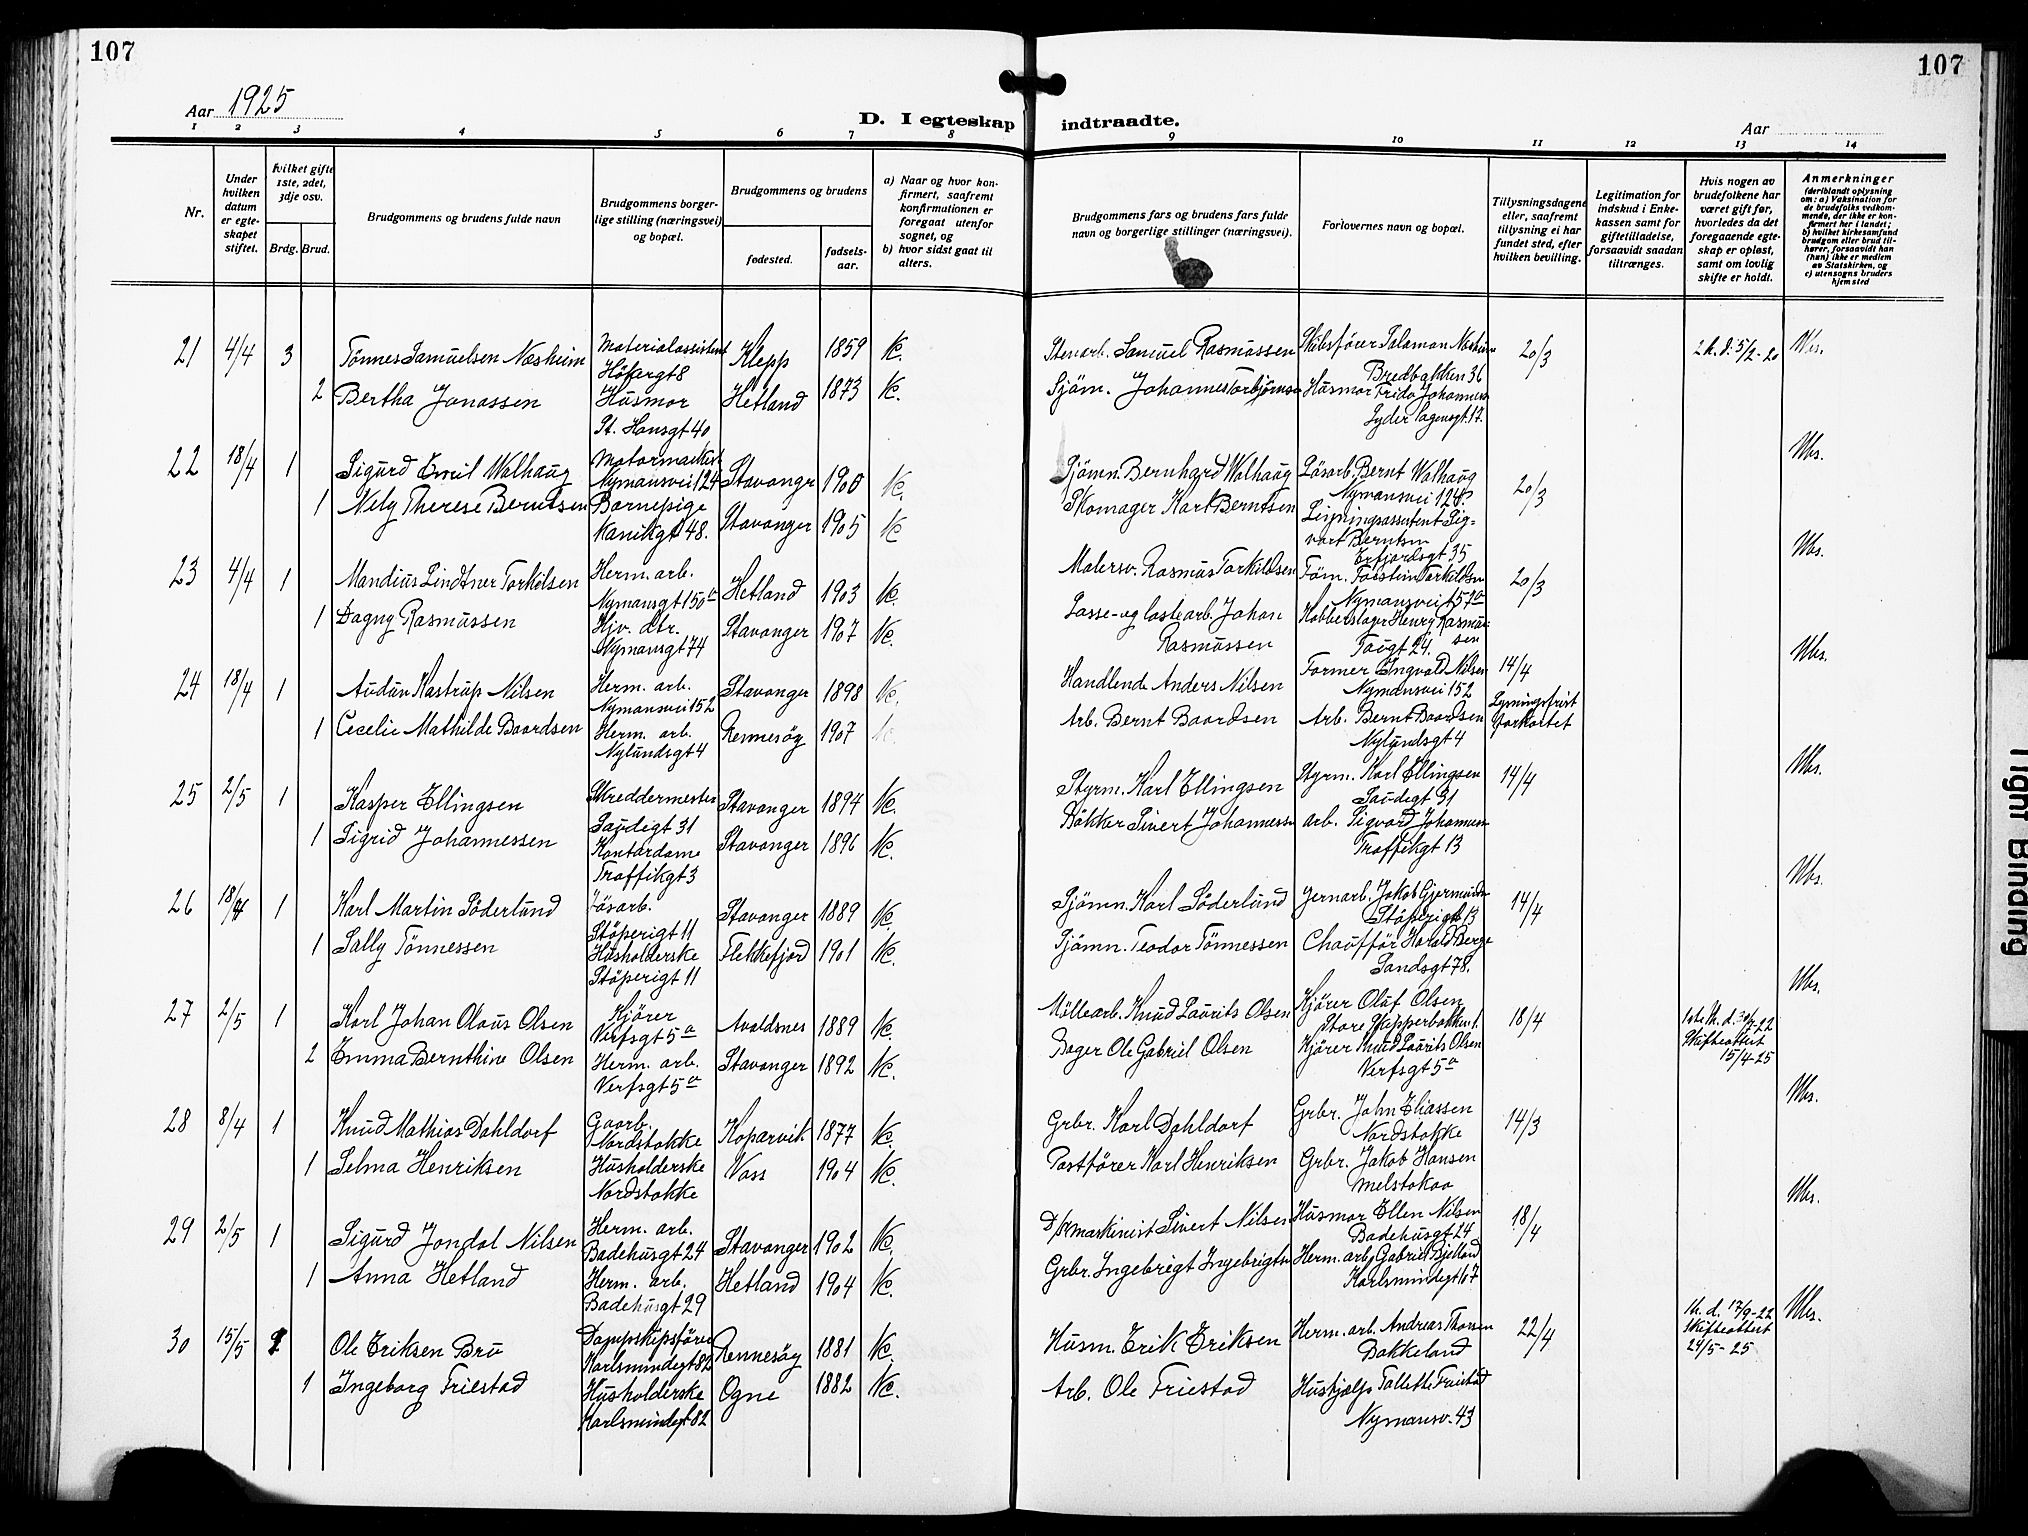 107
107
Aar 1925
D. I egteskap indtraadte.
Aar
1 2 3 4 5 6 7 8 9 10 11 12 13 14
Nr.
Under hvilken datum er egteskapet stiftet.
hvilket gifte 1ste, 2det, 3dje osv.
Brdg. Brud.
Brudgommens og brudens fulde navn
Brudgommens borgerlige stilling (næringsvei) og bopæl.
Brudgommens og brudens
fødested.
fødselsaar.
a) Naar og hvor konfirmert, saafremt konfirmationen er foregaat utenfor sognet, og
b) hvor sidst gaat til alters.
Brudgommens fars og brudens fars fulde navn og borgerlige stillinger (næringsvei).
Forlovernes navn og bopæl.
Tillysningsdagene eller, saafremt tillysning ei har fundet sted, efter hvilken bevilling.
Legitimation for indskud i Enkekassen samt for giftetilladelse, forsaavidt saadan tiltrænges.
Hvis nogen av brudefolkene har været gift før, hvorledes da det foregaaende egteskap er opløst, samt om lovlig skifte er holdt.
Anmerkninger (deriblandt oplysning om: a) Vaksination for de brudefolks vedkommende, der ikke er konfirmert her i landet; b) hvilket kirkesamfund brudgom eller brud tilhører, forsaavidt han (hun) ikke er medlem av Statskirken, og c) utensogns bruders hjemsted
21 4/4 3 Tönnes Samuelsen Næsheim Materialassistent Hökergt 8 Klepp 1859 Stenarb. Samuel Rasmussen 20/3 5/2-20
Bredbakken 36
2 Bertha Jonassen Husmor St. Hansgt 40 Hetland 1873 Sjöm. Johannes Torbjörnsen Husmor Frida Johannesen
Lyder Sagensgt. 17.
22 18/4 1 Sigurd Emil Walhaug Nymansvei 124 Stavanger 1900 Sjömn. Bernhard Walhaug Lösarb. Bernt Walhaug Nymansvei 124 20/3
1 Nely Therese Berntsen Barnepige Kanikgt 48. Stavanger 1905 Skomager Karl Berntsen Ligningsassistent Sigvart Berntsen
Erfjordsgt 35
23 4/4 1 Mandius Lindtner Torkilsen Herm. arb. Nymansgt 150a Hetland 1903 Malersv. Rasmus Torkildsen 20/3
1 Dagny Rasmussen Hjv. dtr. Nymansgt 74 Stavanger 1907 Losse- og lastearb. Johan Rasmussen Kobberslager Henry Rasmussen
24 18/4 1 Audun Kastrup Nilsen Herm. arb. Nymansvei 152 Stavanger 1898 Handlende Anders Nilsen Former Ingvald Nilsen Nymansvei 152 14/4
Lysningsfrist forkortet
1 Cecelie Mathilde Baardsen Herm. arb. Nylundsgt 4 Rennesöy 1907 Arb. Bernt Baardsen Arb. Bernt Baardsen Nylundsgt 4
25 2/5 1 Kasper Ellingsen Skreddermester Saudegt 31 Stavanger 1894 Styrm. Karl Ellingsen Styrm. Karl Ellingsen Saudegt 31 14/4
1 Sigrid Johannessen Kontordame Traffikgt 3 Stavanger 1896 Bökker Sivert Johannessen arb. Sigvard Johannesen Traffikgt 13
26 18/4 1 Karl Martin Söderlund Lösarb. Stöperigt 11 Stavanger 1889 Sjömn. Karl Söderlund Jernarb. Jakob Gjermundsen Stöperigt 13 14/4
1 Sally Tönnessen Husholderske Stöperigt 11 Flekkefjord 1901 Sjömn. Teodor Tönnessen Chaufför Harald Berge Sandsgt 78.
27 2/5 1 Karl Johan Olaus Olsen Kjörer Verfsgt 5a Avaldsnes 1889 Möllearb. Knud Laurits Olsen Kjörer Oluf Olsen Store Skipperbakken 1. 18/4
Skifteattest 15/4-25
2 Emma Bernthine Olsen Herm. arb. Verfsgt 5a Stavanger 1892 Bager Ole Gabriel Olsen Kjörer Knud Laurits Olsen Verfsgt 5a
28 8/4 1 Knud Mathias Dahldorf Gaarb. Nordstokke Koparvik 1877 Grbr. Karl Dahldorf Grbr. John Eliassen Nordstokke 14/3
1 Selma Henriksen Husholderske Nordstokke Voss 1904 Postförer Karl Henriksen Grbr. Jakob Hansen Melstokaa
29 2/5 1 Sigurd Jondal Nilsen Herm. arb. Badehusgt 24 Stavanger 1902 D/Sk maskinist Sivert Nilsen Husmor Ellen Nilsen Badehusgt 24 18/4
1 Anna Hetland Herm. arb. Badehusgt 29 Hetland 1904 Grbr. Ingebrigt Ingebrigtsen Herm. arb. Gabriel Bjelland Karlsmindegt 67
30 15/5 Ole Eriksen Bru Dampskipsförer Karlsmindegt 82 Rennesöy 1881 Husm. Erik Eriksen Herm. arb. Andreas Thorsen Bakkeland 22/4 17/9-22 Skifteattest 24/5-25
1 Ingeborg Friestad Husholderske Karlsmindegt 82 Ogne 1882 Arb. Ole Friestad Hushjælp Tollette Friestad Nymansv. 43
Tight Binding